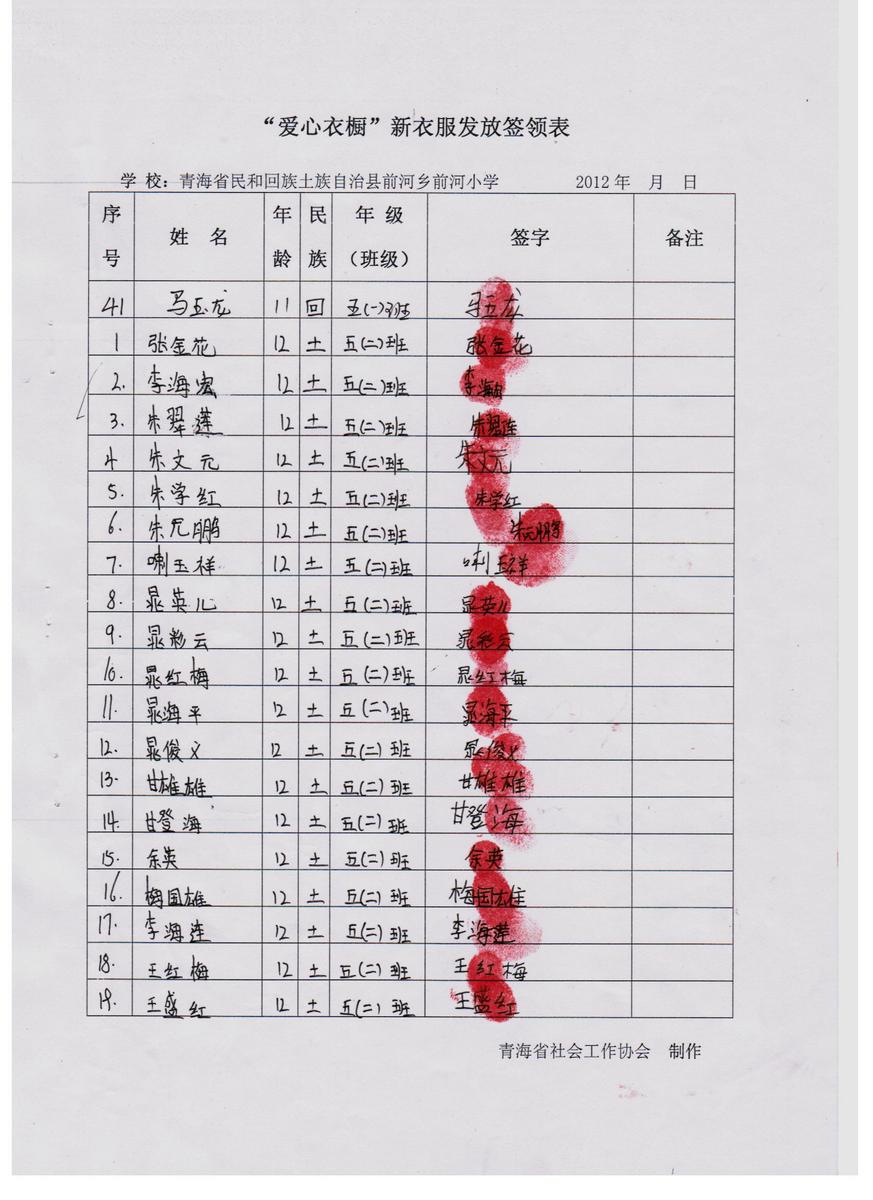 “爱心衣橱”新衣服发放签领表
学 校：青海省民和回族土族自治县前河乡前河小学 2012 年 月 日
序号 姓 名 年龄 民族 年 级（班级） 签字 备注
41 马玉龙 11 回 五(一)班 马玉龙
1 张金花 12 土 五(二)班 张金花
2. 李海宏 12 土 五(二)班 李海宏
3. 朱翠莲 12 土 五(二)班 朱翠连
4 朱文元 12 土 五(二)班 朱文元
5. 朱学红 12 土 五(二)班 朱学红
6. 朱元鹏 12 土 五(二)班 朱元鹏
7. 喇玉祥 12 土 五(二)班 喇玉祥
8. 晁英儿 12 土 五(二)班 晁英儿
9. 晁彩云 12 土 五(二)班 晁彩云
10. 晁红梅 12 土 五(二)班 晁红梅
11. 晁海平 12 土 五(二)班 晁海平
12. 晁俊义 12 土 五(二)班 晁俊义
13. 甘雄雄 12 土 五(二)班 甘雄雄
14. 甘登海 12 土 五(二)班 甘登海
15. 余英 12 土 五(二)班 余英
16. 梅国雄 12 土 五(二)班 梅国雄
17. 李海莲 12 土 五(二)班 李海莲
18. 王红梅 12 土 五(二)班 王红梅
19. 王盛红 12 土 五(二)班 王盛红
青海省社会工作协会 制作